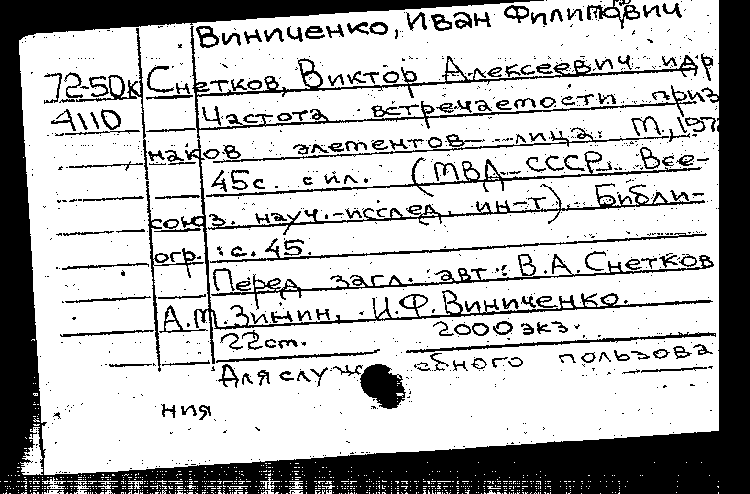 Виниченко, Иван Филиппович
72-50к Снетков, Виктор Алексеевич и др
4110 Частота встречаемости приз
наков элементов лица. М., 197
45с. с ил. (МВД СССР. Все-
союз. науч.-исслед. ин-т). Библи-
огр.: с. 45.
Перед загл. авт.: В.А. Снетков
А.М. Зинин, И.Ф. Виниченко.
22см. 2000 экз.
Для служебного пользова
ния